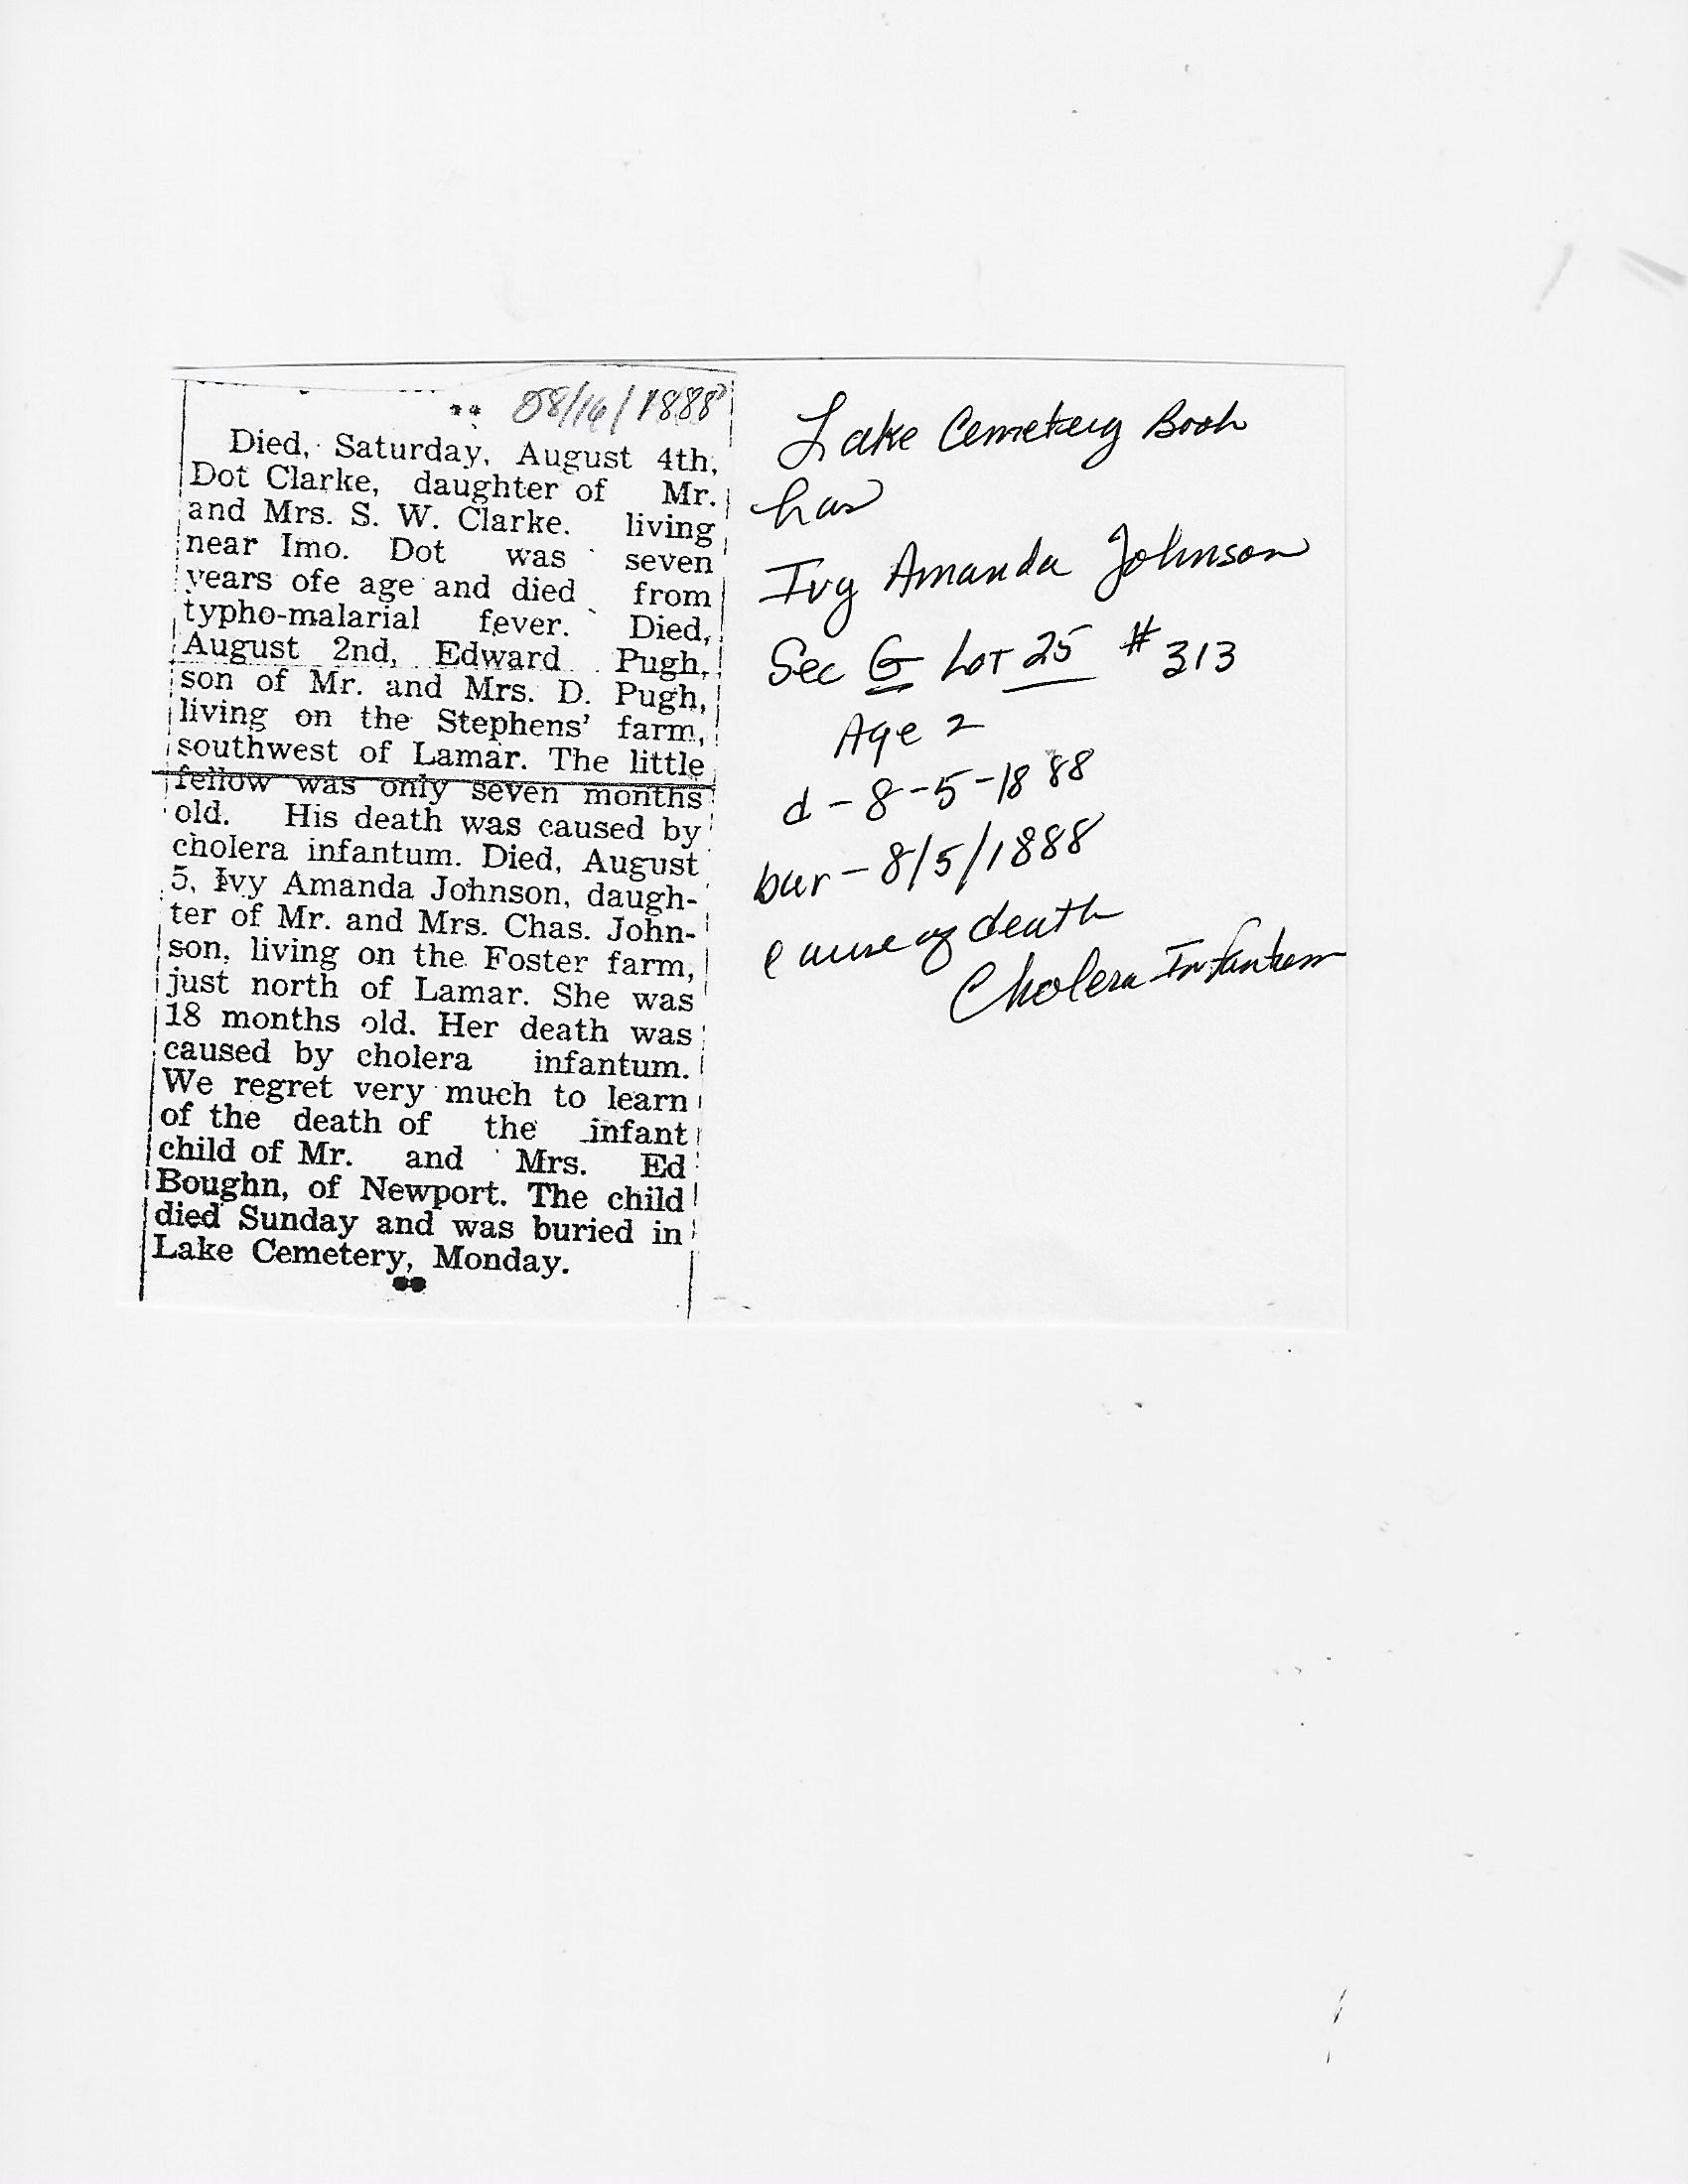 08/16/1888
Died, Saturday, August 4th,
Dot Clarke, daughter of Mr.
and Mrs. S. W. Clarke. living
near Imo. Dot was seven
years ofe age and died from
typho-malarial fever. Died,
August 2nd, Edward Pugh,
son of Mr. and Mrs. D. Pugh,
living on the Stephens' farm,
southwest of Lamar. The little
fellow was only seven months
old. His death was caused by
cholera infantum. Died, August
5, Ivy Amanda Johnson, daugh-
ter of Mr. and Mrs. Chas. John-
son, living on the Foster farm,
just north of Lamar. She was
18 months old. Her death was
caused by cholera infantum.
We regret very much to learn
of the death of the infant
child of Mr. and Mrs. Ed
Boughn, of Newport. The child
died Sunday and was buried in
Lake Cemetery, Monday.
Lake Cemetery Book
has
Ivy Amanda Johnson
Sec G Lot 25 # 313
Age 2
d - 8-5-1888
bur - 8/5/1888
cause of death
Cholera Infantum